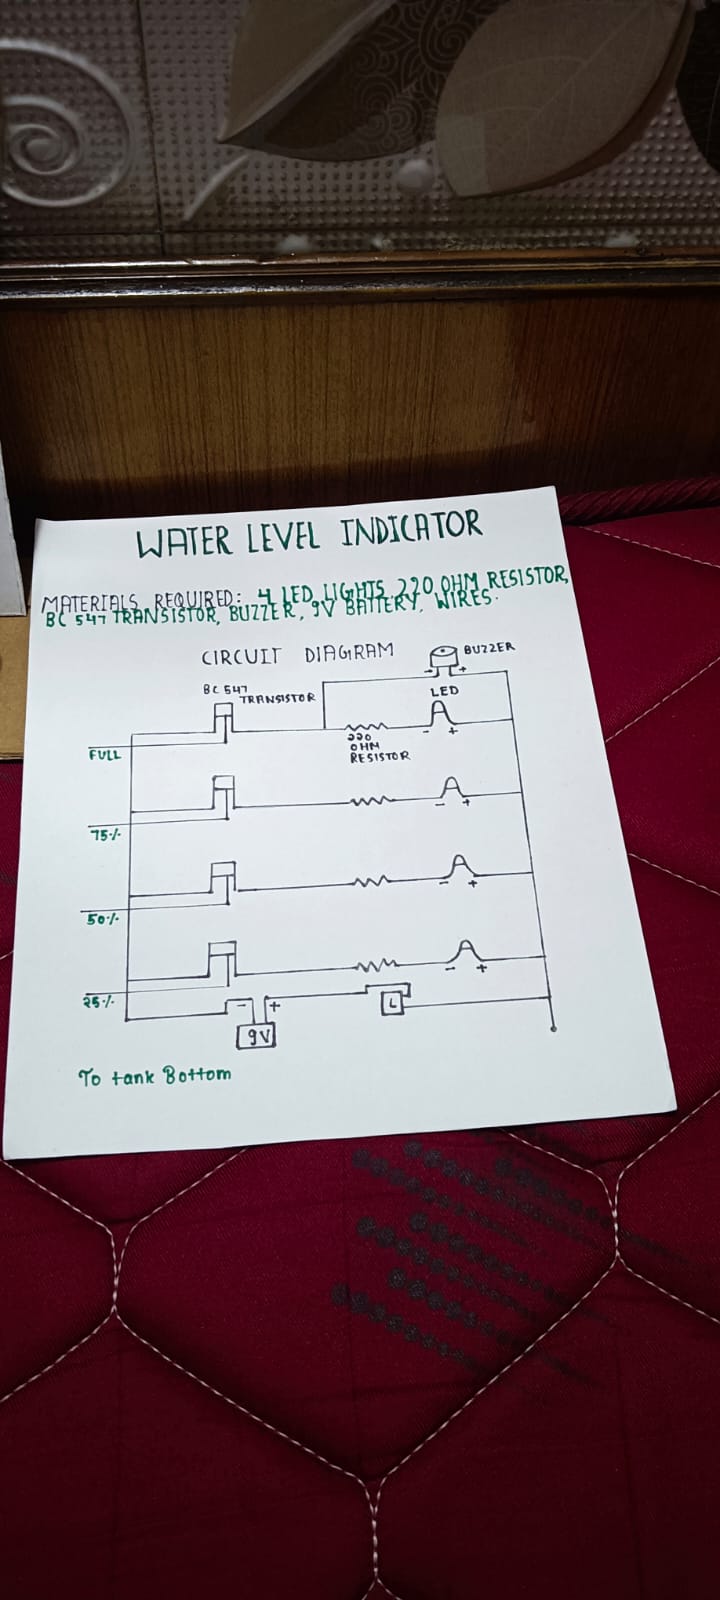 WATER LEVEL INDICATOR
MATERIALS REQUIRED: 4 LED LIGHTS, 220 OHM RESISTOR,
BC 547 TRANSISTOR, BUZZER, 9V BATTERY, WIRES.
CIRCUIT DIAGRAM
BUZZER
- +
BC 547
TRANSISTOR
LED
- +
220
OHM
RESISTOR
FULL
75%
- +
50%
- +
25%
- +
- +
9V
L
To tank Bottom